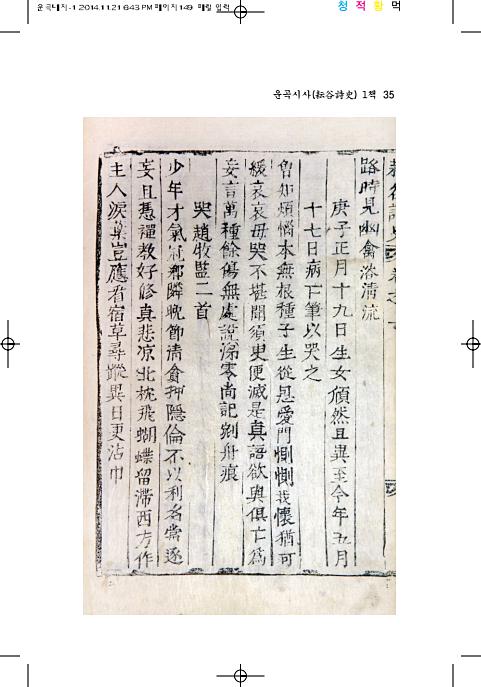 2014.11.21 6:43 PM 페이지149
청 적 황 먹
운곡시사(耘谷詩史) 1책 35
路時見幽禽浴清流
庚子正月十九日生女頎然且異至今年五月
十七日病亡筆以哭之
曾知煩惱本無根種子生從恩愛門惻惻我懷猶可
緩哀哀母哭不堪聞須臾便滅是真語欲與俱亡爲
妄言萬種餘傷無處說深零尚記刻舟痕
哭趙牧監二首
少年才氣冠鄕隣晩節清貪狎隱倫不以利名甞逐
妄且憑禪教好修真悲凉北枕飛蝴蝶留滯西方作
主人淚豈應看宿草尋蹤異日更沾巾